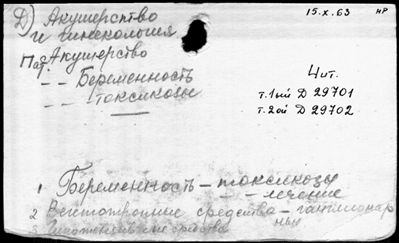 Д) Акушерство
и гинекология
15.X.63 НР
Пат. Акушерство
-- Беременность
-- токсикозы
Чит.
т.1ый Д 29701
т.2ой Д 29702
1 Беременность – токсикозы
– лечение
2 Вегетотропные средства – ганглионар
ны
3 Гипотензивные средства